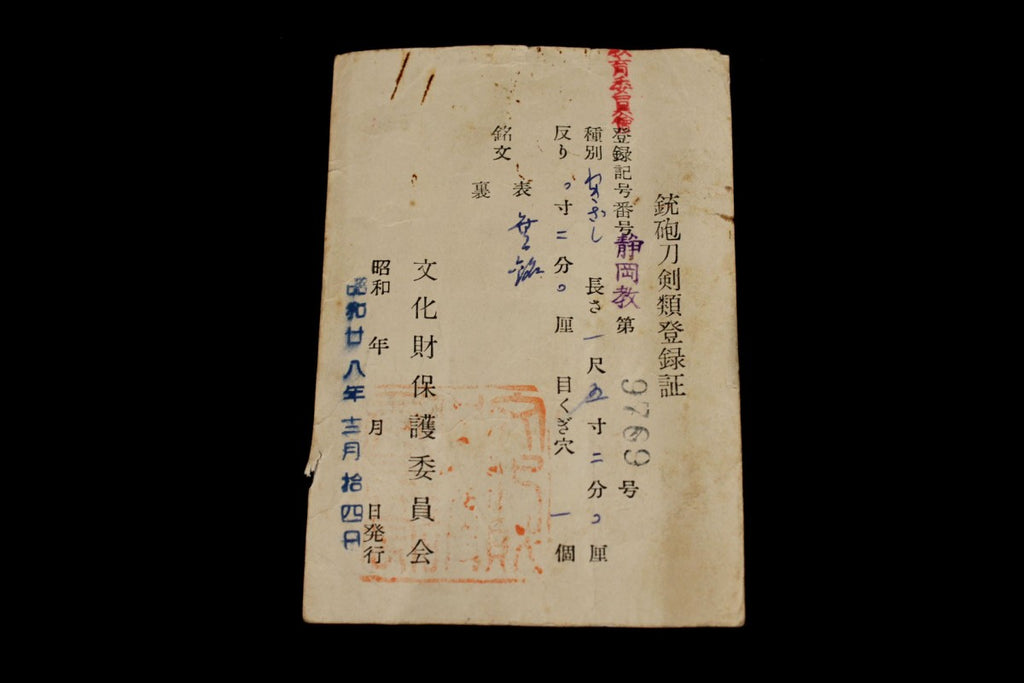 銃砲刀剣類登録証
登録記号番号 静岡教 第 9769 号
種別 わきざし 長さ 一尺五寸二分〇厘
反り 〇寸二分〇厘 目くぎ穴 一個
銘文 表 無銘
裏
文化財保護委員会
昭和 年 月 日発行
昭和廿八年十二月拾四日
教育委員会